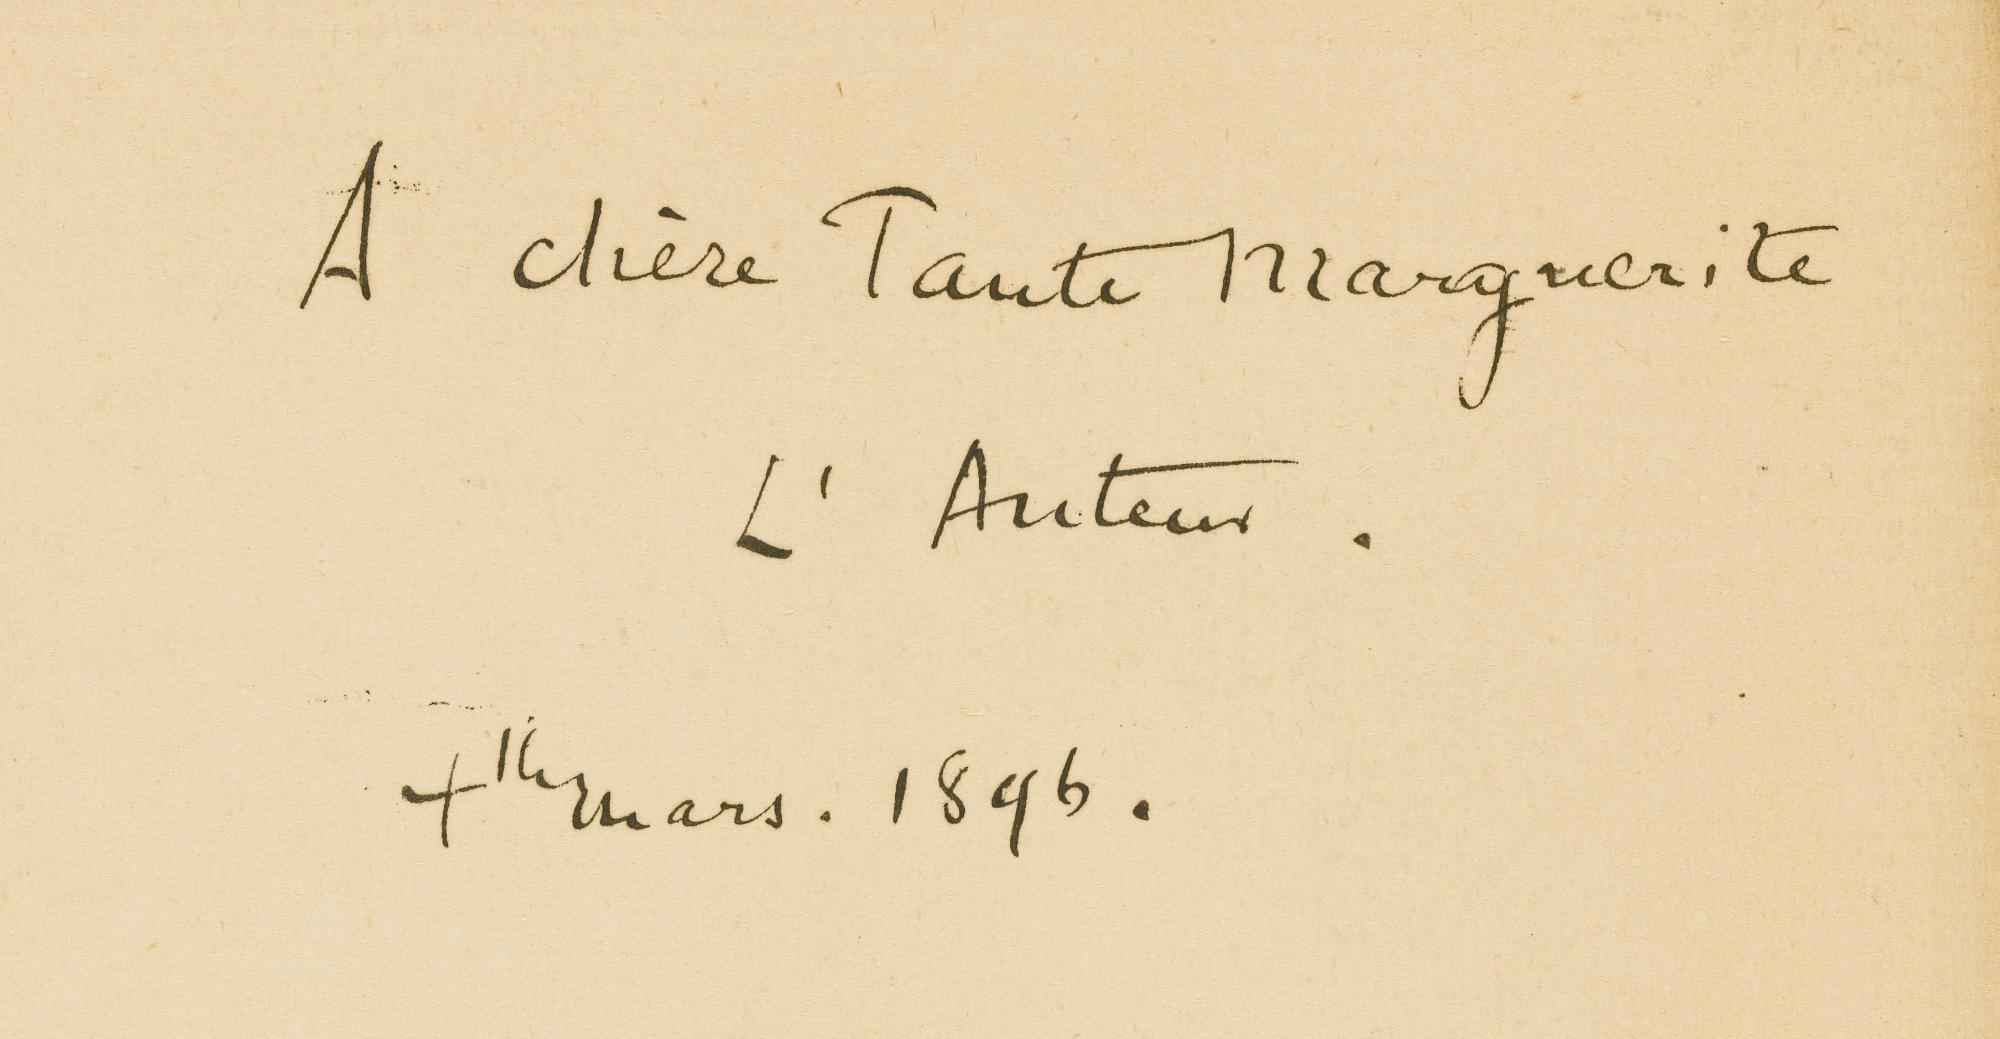 A chère Tante Marguerite
L' Auteur .
4th mars . 1896 .